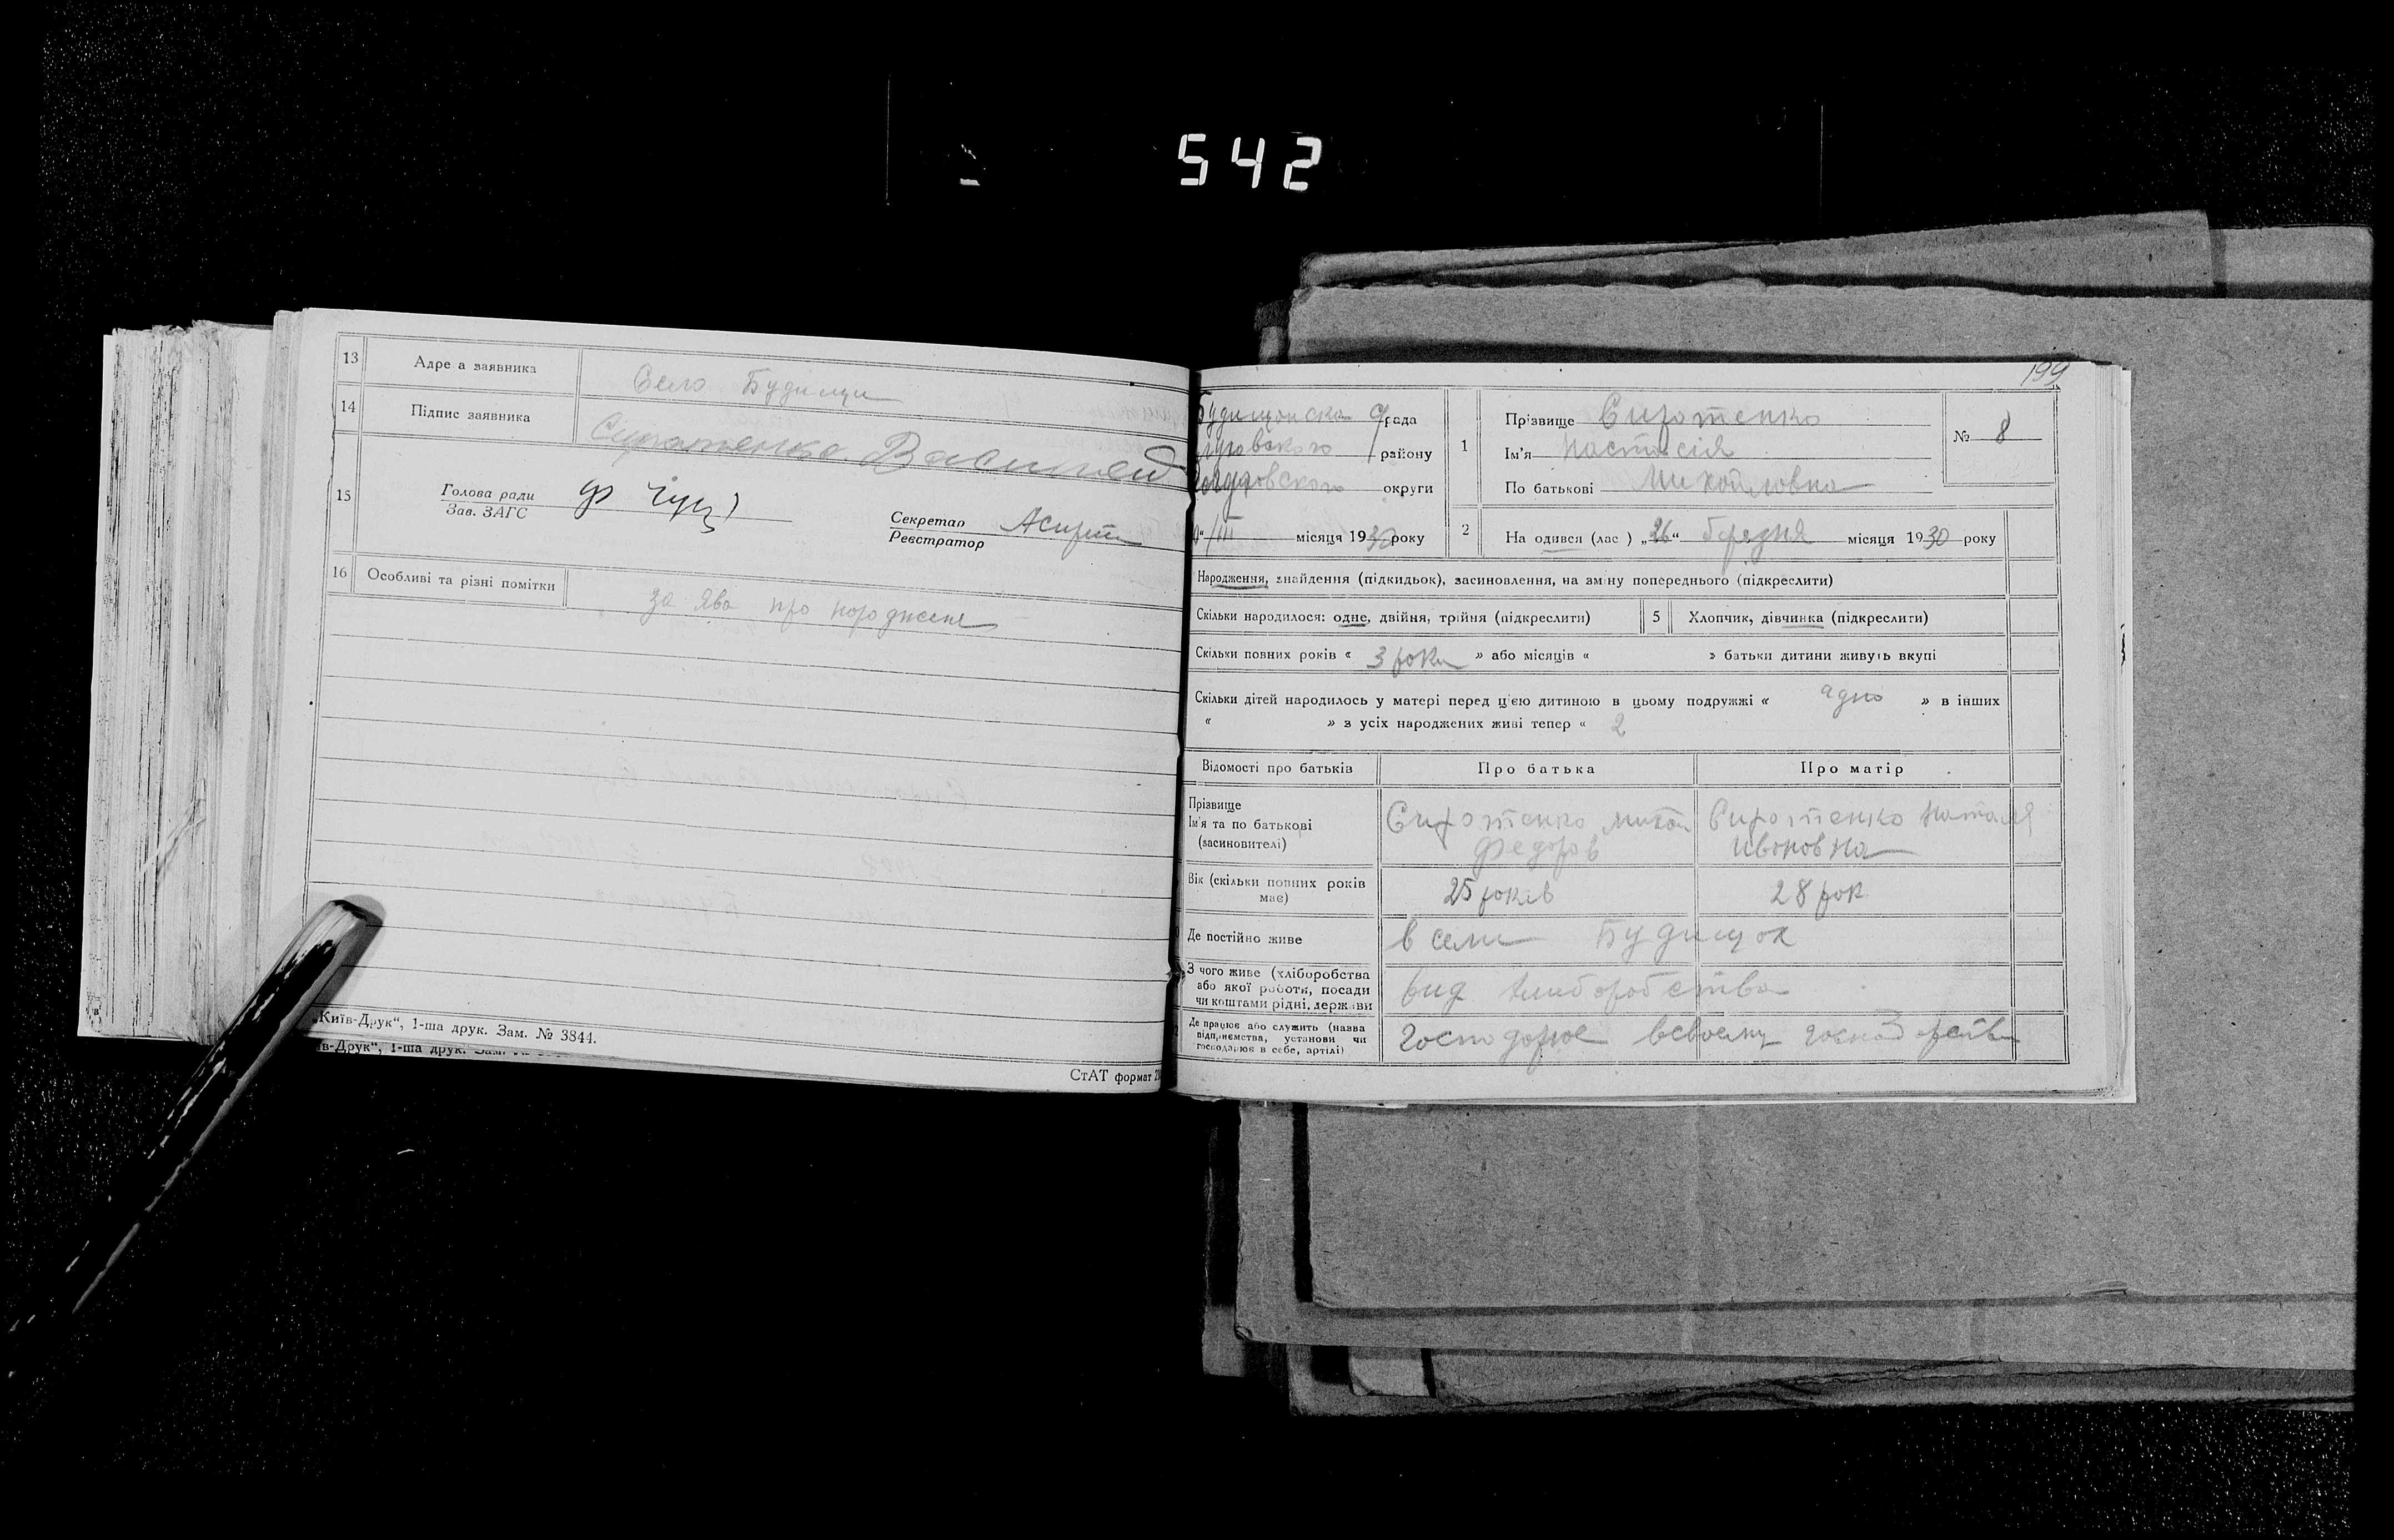 542
13 Адре а заявника Село Будищи
14 Підпис заявника Сиротенко Василей
15 Голова ради
Зав. ЗАГС
Секретар
Реєстратор
16 Особливі та різні помітки за ява про народженє
„Київ-Друк“, 1-ша друк. Зам. № 3844.
СтАТ формат
199
рада
району
округи
місяця 1930 року
1 Прізвище Сиротенко
Ім'я Настасія
По батькові Михайловна
№ 8
2 На одився (лас ) „26“ березня місяця 1930 року
Народження, знайдення (підкидьок), засиновлення, на зміну попереднього (підкреслити)
Скільки народилося: одне, двійня, трійня (підкреслити) 5 Хлопчик, дівчинка (підкреслити)
Скільки повних років « 3 роки » або місяців « » батьки дитини живуть вкупі
Скільки дітей народилось у матері перед цією дитиною в цьому подружжі « адно » в інших
« » з усіх народжених живі тепер « 2
Відомості про батьків Про батька Про матір
Прізвище
Ім'я та по батькові
(засиновителі)
Сиротенко Михай
Федоров
Сиротенко Наталя
Ивановна
Вік (скільки повних років
має)
25 років
28 рок
Де постійно живе в сели Будищах
З чого живе (хліборобства
або якої роботи, посади
чи коштами рідні, держави
вид хлиборобства
Де працює або служить (назва
підприємства, установи чи
господарює в себе, артілі)
Господорює всвоему господорстви